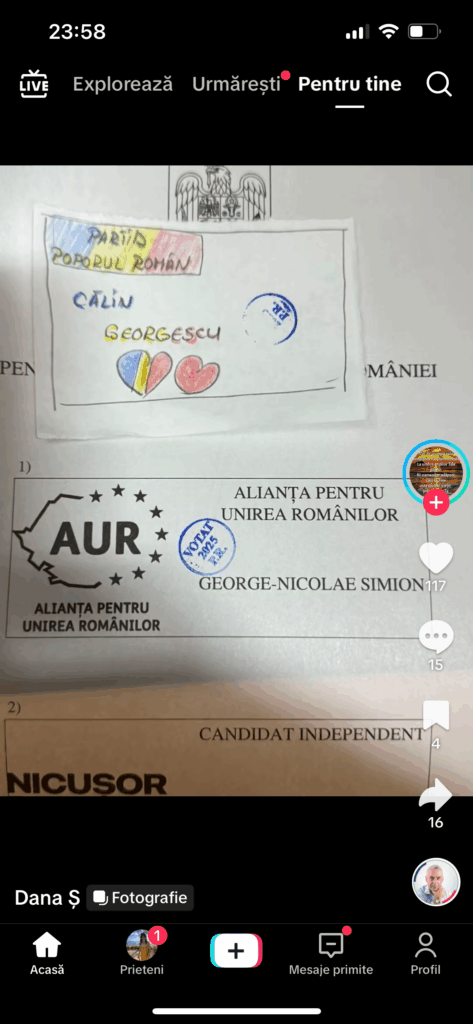 23:58
LIVE
Explorează
Urmărești
Pentru tine
PARTID
POPORUL ROMÂN
CĂLIN
GEORGESCU
P.R.
PEN
OMÂNIEI
1)
ALIANȚA PENTRU
UNIREA ROMÂNILOR
AUR
VOTAT
2025
P.R.
GEORGE-NICOLAE SIMION
ALIANȚA PENTRU
UNIREA ROMÂNILOR
117
15
2)
CANDIDAT INDEPENDENT
4
NICUȘOR
16
Dana Ș
Fotografie
Acasă
1
Prieteni
Mesaje primite
Profil